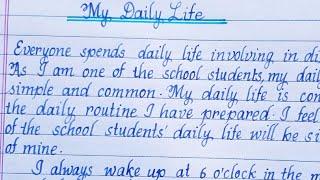 My Daily Life
Everyone spends daily life involving in di
As I am one of the school students, my daily
simple and common. My daily life is con
the daily routine I have prepared. I feel
of the school students' daily life will be si
of mine.
I always wake up at 6 o'clock in the m